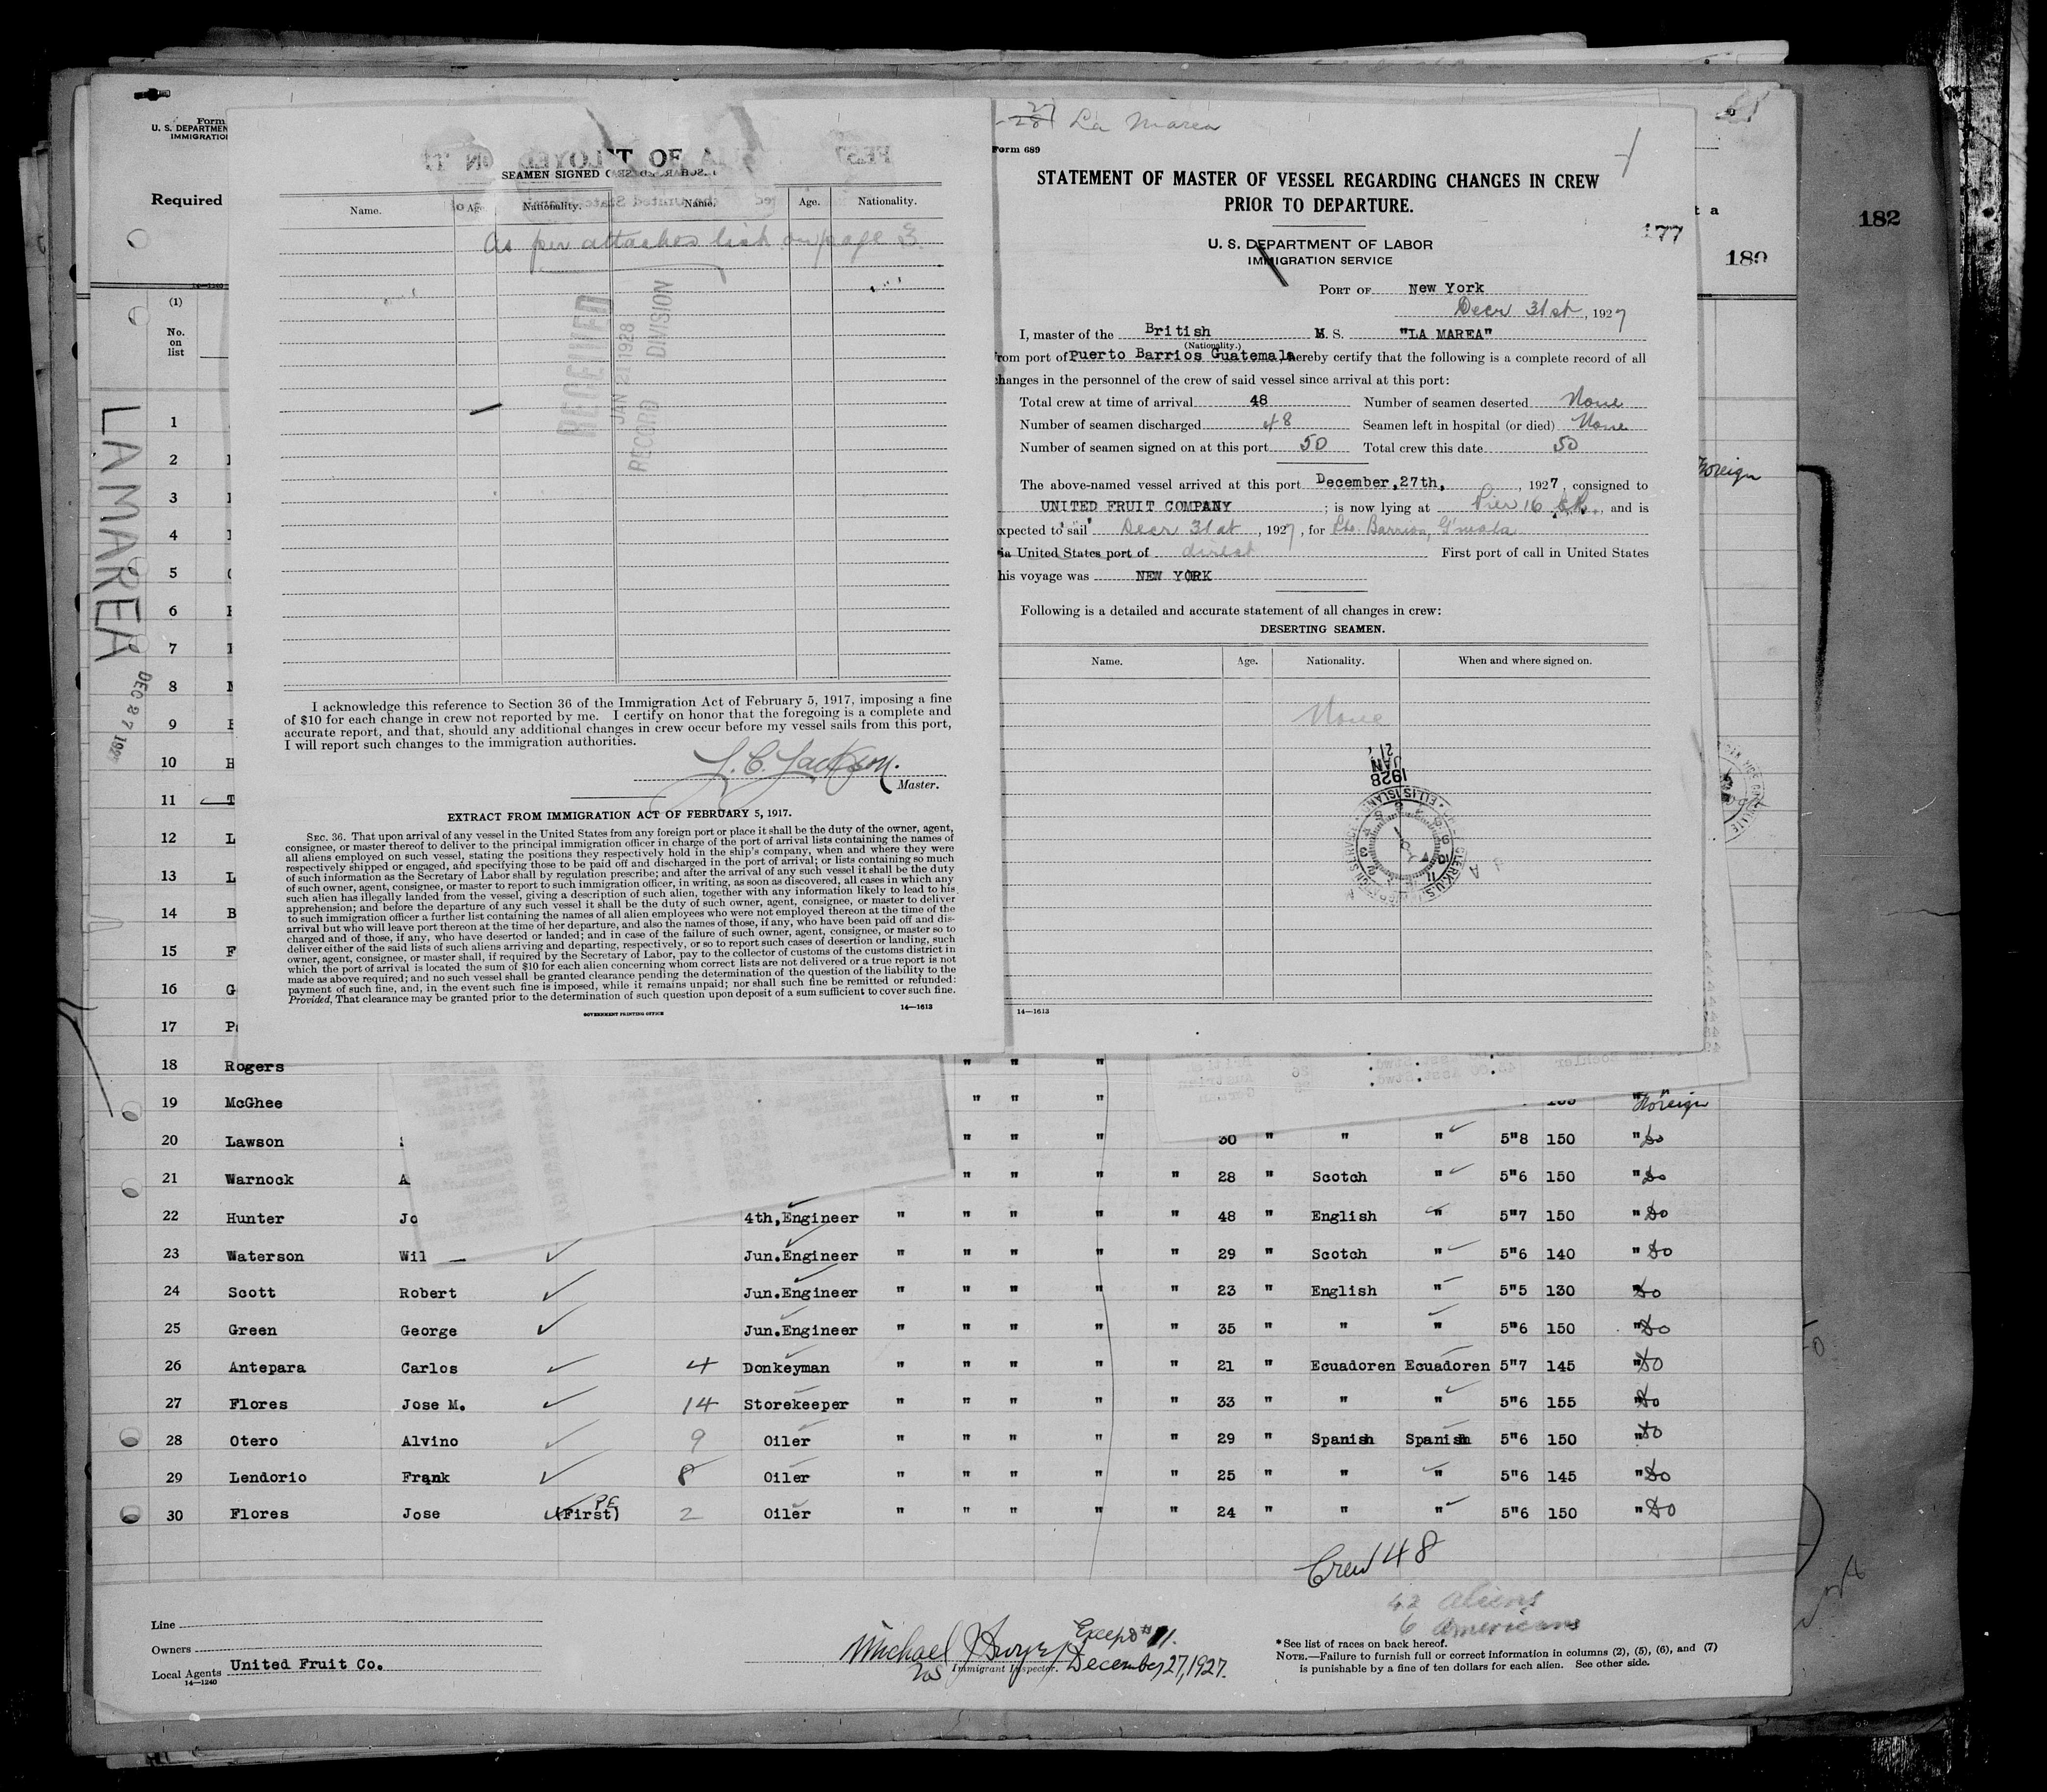 Form
U. S. DEPARTMEN
IMMIGRATIO
Required
(1)
No.
on
list
LA MAREA
DEC 27 192
SEAMEN SIGNED
Name. Age. Nationality. Name. Age. Nationality.
As per attached list on page 3.
RECEIVED
JAN 21 1928
RECORD DIVISION
I acknowledge this reference to Section 36 of the Immigration Act of February 5, 1917, imposing a fine
of $10 for each change in crew not reported by me. I certify on honor that the foregoing is a complete and
accurate report, and that, should any additional changes in crew occur before my vessel sails from this port,
I will report such changes to the immigration authorities.
L. C. Jackson.
Master.
EXTRACT FROM IMMIGRATION ACT OF FEBRUARY 5, 1917.
SEC. 36. That upon arrival of any vessel in the United States from any foreign port or place it shall be the duty of the owner, agent,
consignee, or master thereof to deliver to the principal immigration officer in charge of the port of arrival lists containing the names of
all aliens employed on such vessel, stating the positions they respectively hold in the ship's company, when and where they were
respectively shipped or engaged, and specifying those to be paid off and discharged in the port of arrival; or lists containing so much
of such information as the Secretary of Labor shall by regulation prescribe; and after the arrival of any such vessel it shall be the duty
of such owner, agent, consignee, or master to report to such immigration officer, in writing, as soon as discovered, all cases in which any
such alien has illegally landed from the vessel, giving a description of such alien, together with any information likely to lead to his
apprehension; and before the departure of any such vessel it shall be the duty of such owner, agent, consignee, or master to deliver
to such immigration officer a further list containing the names of all alien employees who were not employed thereon at the time of the
arrival but who will leave port thereon at the time of her departure, and also the names of those, if any, who have been paid off and dis-
charged and of those, if any, who have deserted or landed; and in case of the failure of such owner, agent, consignee, or master so to
deliver either of the said lists of such aliens arriving and departing, respectively, or so to report such cases of desertion or landing, such
owner, agent, consignee, or master shall, if required by the Secretary of Labor, pay to the collector of customs of the customs district in
which the port of arrival is located the sum of $10 for each alien concerning whom correct lists are not delivered or a true report is not
made as above required; and no such vessel shall be granted clearance pending the determination of the question of the liability to the
payment of such fine, and, in the event such fine is imposed, while it remains unpaid; nor shall such fine be remitted or refunded:
Provided, That clearance may be granted prior to the determination of such question upon deposit of a sum sufficient to cover such fine.
GOVERNMENT PRINTING OFFICE
14—1613
La Marea
Form 689
STATEMENT OF MASTER OF VESSEL REGARDING CHANGES IN CREW
PRIOR TO DEPARTURE.
U. S. DEPARTMENT OF LABOR
IMMIGRATION SERVICE
177
182
180
PORT OF New York
Decr 31st, 1927
I, master of the British M. S. "LA MAREA"
(Nationality.)
from port of Puerto Barrios Guatemala, hereby certify that the following is a complete record of all
changes in the personnel of the crew of said vessel since arrival at this port:
Total crew at time of arrival 48 Number of seamen deserted None
Number of seamen discharged 48 Seamen left in hospital (or died) None
Number of seamen signed on at this port 50 Total crew this date 50
The above-named vessel arrived at this port December, 27th, , 1927, consigned to
UNITED FRUIT COMPANY ; is now lying at Pier 16 , and is
expected to sail Decr 31st , 1927, for Pto. Barrios, G'mala
via United States port of direct First port of call in United States
his voyage was NEW YORK
Following is a detailed and accurate statement of all changes in crew:
DESERTING SEAMEN.
Name. Age. Nationality. When and where signed on.
None
JAN 21 1928
ELLIS ISLAND
14—1613
Foreign
1
2
3
4
5
6
7
8
9
10 H
11 T
12 L
13 L
14 B
15 F
16 G
17 P
18 Rogers " " "
19 McGhee " " " " Foreign
20 Lawson " " " 30 " " " 5"8 150 " Do
21 Warnock A " " " " 28 " Scotch " 5"6 150 " Do
22 Hunter Jo 4th, Engineer " " " " " 48 " English " 5"7 150 " Do
23 Waterson Wil Jun. Engineer " " " " " 29 " Scotch " 5"6 140 " Do
24 Scott Robert Jun. Engineer " " " " " 23 " English " 5"5 130 " Do
25 Green George Jun. Engineer " " " " " 35 " " " 5"6 150 " Do
26 Antepara Carlos 4 Donkeyman " " " " " 21 " Ecuadoren Ecuadoren 5"7 145 " Do
27 Flores Jose M. 14 Storekeeper " " " " " 33 " " " 5"6 155 " Do
28 Otero Alvino 9 Oiler " " " " " 29 " Spanish Spanish 5"6 150 " Do
29 Lendorio Frank 8 Oiler " " " " " 25 " " " 5"6 145 " Do
30 Flores Jose (First) PE 2 Oiler " " " " " 24 " " " 5"6 150 " Do
Crew 48
42 aliens
6 Americans
Line
Owners
Local Agents United Fruit Co.
14—1240
Michael J Dwyer Except #11.
Immigrant Inspector. December 27, 1927.
* See list of races on back hereof.
NOTE.—Failure to furnish full or correct information in columns (2), (5), (6), and (7)
is punishable by a fine of ten dollars for each alien. See other side.